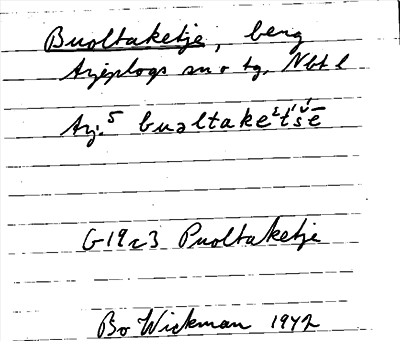 Buoltaketje, berg
Arjeplogs sn o tg, Nbt l
Arj.⁵ buəltakeᵋt́š́ē
G19c3 Puoltaketje
Bo Wickman 1942